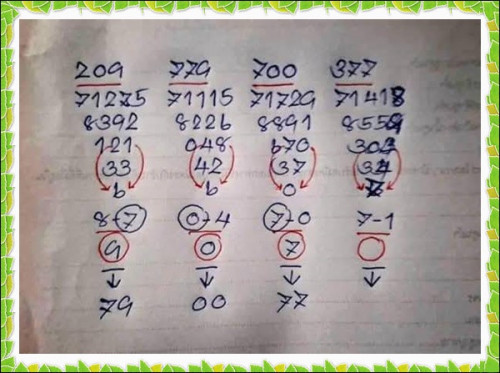 209 779 700 377
71275 71115 71729 71418
8392 8226 8891 8559
121 048 670 304
33 42 37 34
6 6 0 7
8-7 0-4 7-0 7-1
9 0 7
79 00 77